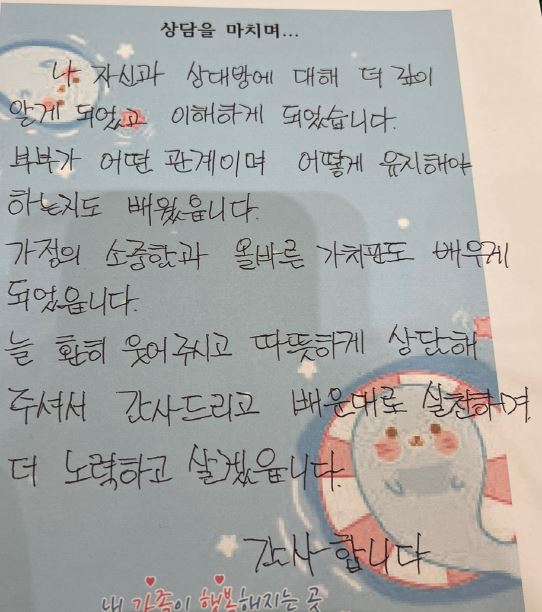 상담을 마치며...
나 자신과 상대방에 대해 더 깊이
알게 되었고 이해하게 되었습니다.
부부가 어떤 관계이며 어떻게 유지해야
하는지도 배웠읍니다.
가정의 소중함과 올바른 가치관도 배우게
되었읍니다.
늘 환히 웃어주시고 따뜻하게 상담해
주셔서 감사드리고 배운대로 실천하며
더 노력하고 살겠읍니다.
감사합니다
내 가족이 행복해지는 곳